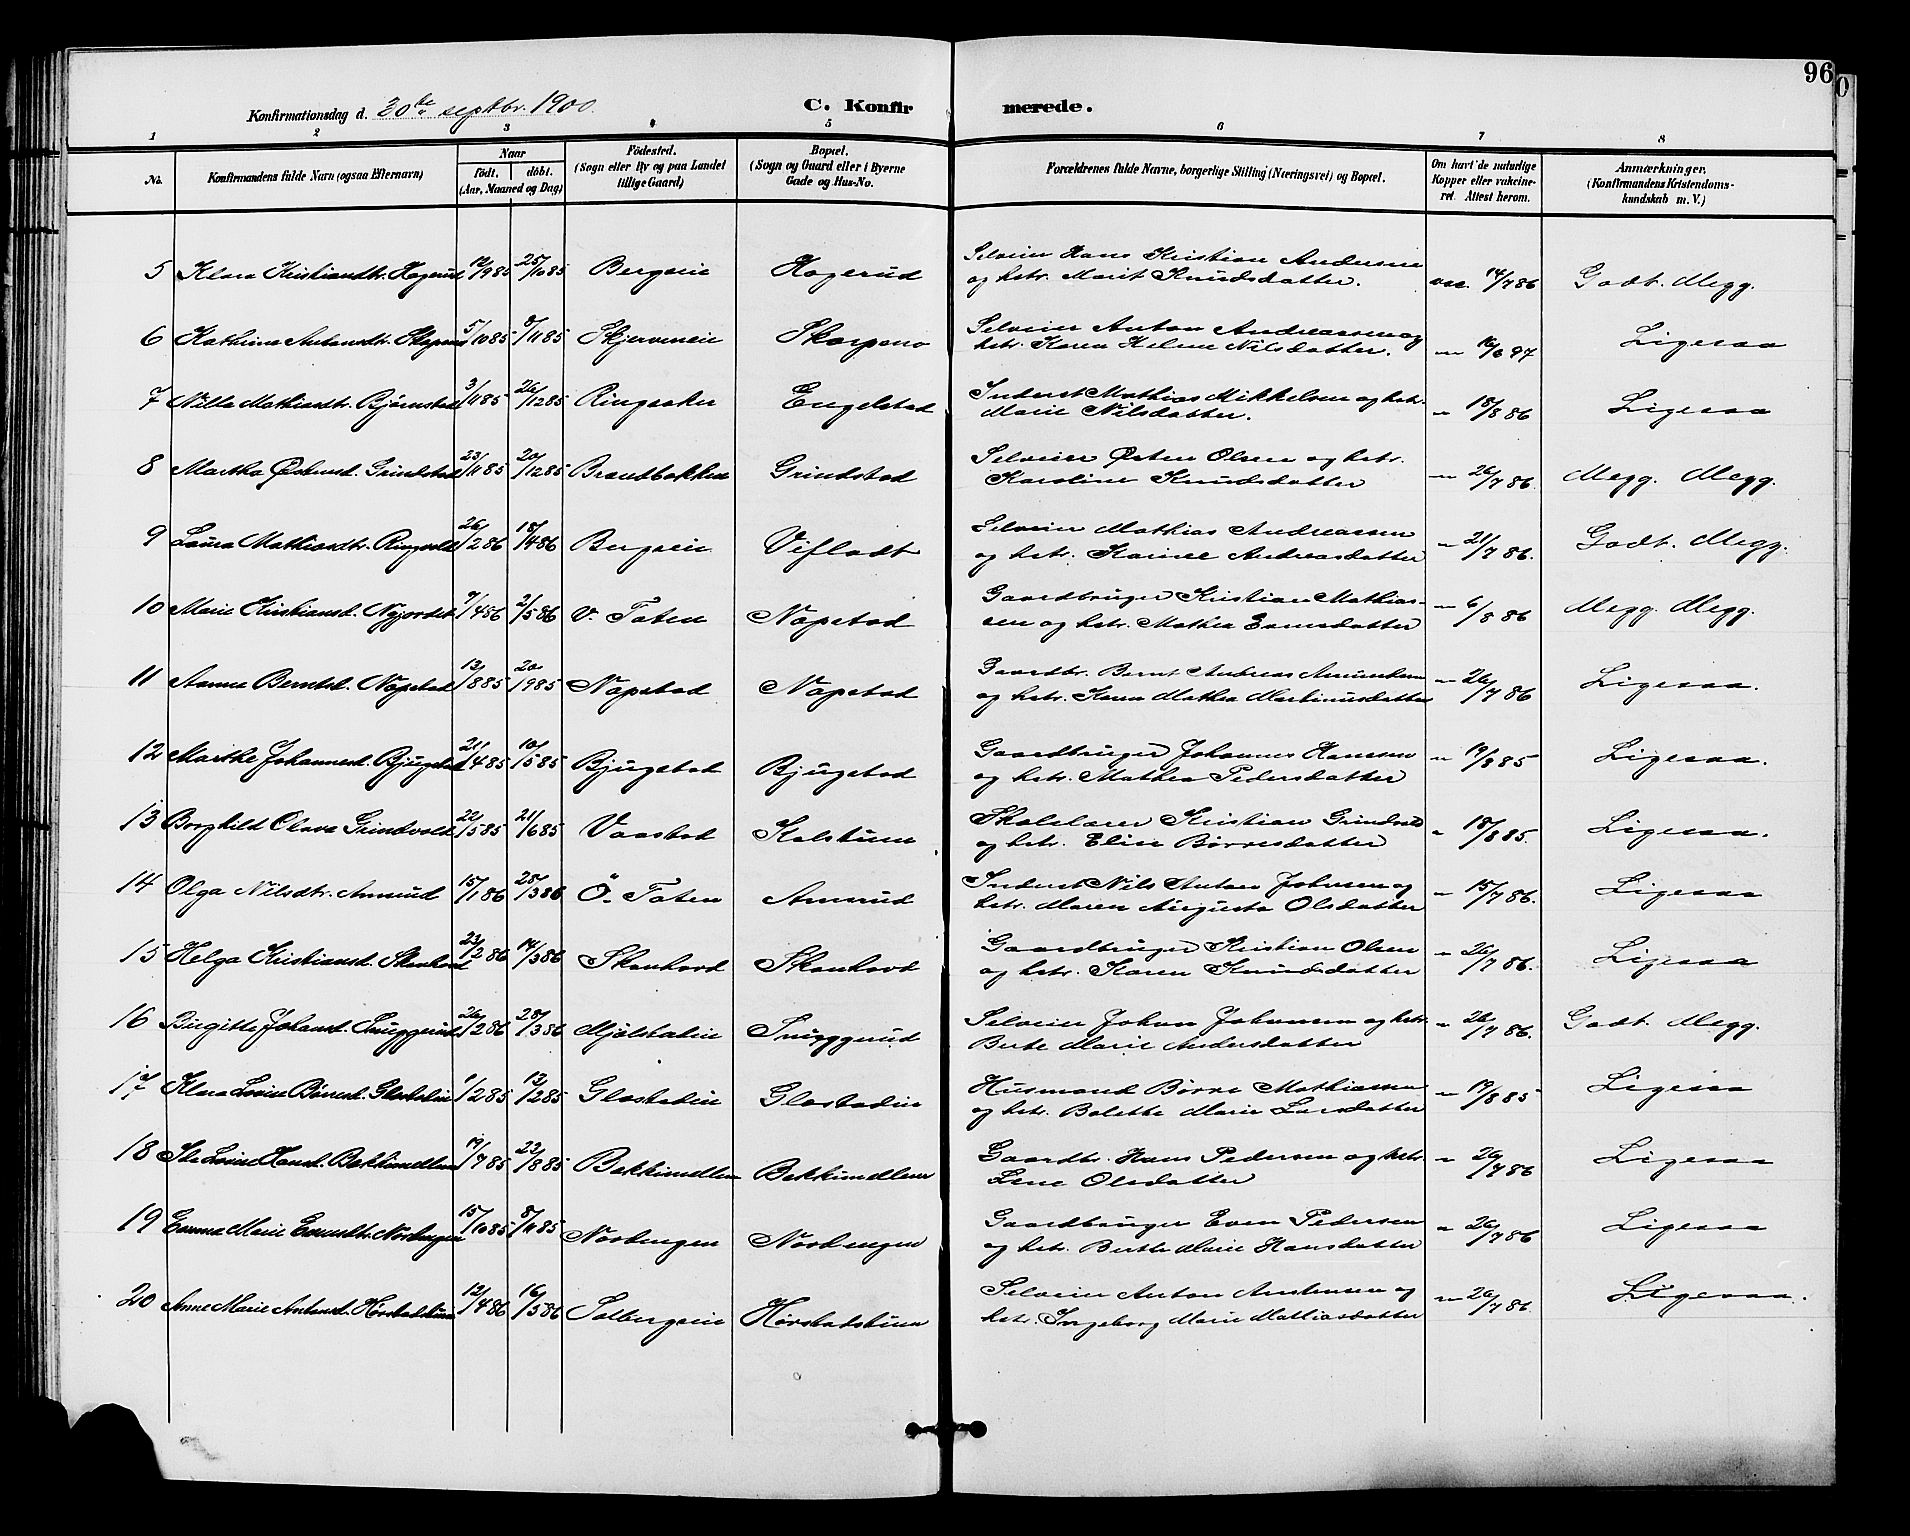 96
Konfirmationsdag d. 30te septbr. 1900. C. Konfirmerede.
1 2 3 4 5 6 7 8
No. Konfirmandens fulde Navn (ogsaa Efternavn) Naar født. døbt. (Aar, Maaned og Dag) Fødested. (Sogn eller By og paa Landet tillige Gaard) Bopæl. (Sogn og Gaard eller i Byerne Gade og Hus-No. Forældrenes fulde Navne, borgerlige Stilling (Næringsvei) og Bopæl. Om havt de naturlige Kopper eller vakcineret. Attest herom. Anmærkninger. (Konfirmandens Kristendomskundskab m. V.)
5 Klara Kristiansdtr. Hagerud 12/9 85 25/10 85 Bergseie Hagerud Selveier Hans Kristian Andersen og hstr. Marit Knudsdatter. vac. 14/7 86 Godt. Megg.
6 Kathrine Antonsdtr. Skarpsno 5/10 85 8/11 85 Skjerveneie Skarpsno Selveier Anton Andreassen og hstr. Karen Helene Nilsdatter. 16/6 97 Ligesaa
7 Nilla Mathiasdtr. Bjørnstad 3/11 85 26/12 85 Ringsaker Engelstad Inderst Mathias Mikkelsen og hstr. Marie Nilsdatter. " 18/8 86 Ligesaa
8 Martha Østensd. Grindstad 23/11 85 20/12 85 Brandbakken Grindstad Selveier Østen Olsen og hstr. Karoline Knudsdatter 26/7 86. Megg. Megg.
9 Laura Mathiasdtr. Ringvold 26/2 86 18/4 86 Bergseie Vifladt Selveier Mathias Andreassen og hstr. Karine Andreasdatter 21/7 86. Godt. Megg.
10 Marie Kristiansd. Nyjordet 7/4 86 2/5 86 V. Toten Napstad Gaardbruger Kristian Mathiassen og hstr. Mathea Evensdatter 6/8 86 Megg. Megg.
11 Anna Berntsd. Napstad 13/8 85 20/9 85 Napstad Napstad Gaardbr. Bernt Andreas og hstr. Karen Mathea Martinusdatter 26/7 86 Ligesaa.
12 Marthe Johannesd. Bjugstad 21/4 85 10/5 85 Bjugstad Bjugstad Gaardbruger Johannes Hansen og hstr. Mathea Pedersdatter " 19/8 85 Ligesaa.
13 Borghild Olava Grindvold 22/5 85 21/6 85 Vaastad Kalstuen Skolelærer Kristian Grindvold og hstr. Eline Børresdatter " 18/8 85. Ligesaa.
14 Olga Nilsdtr. Amrud 15/1 86 28/3 86 Ö. Toten Amrud Inderst Nils Anton Johnsen og hstr. Maren Augusta Olsdatter " 15/7 86. Ligesaa
15 Helga Kristiansd. Skonhovd 23/2 86 14/3 86 Skonhovd Skonhovd Gaardbruger Kristian Olsen og hstr. Karen Knudsdatter " 26/7 86. Ligesaa
16 Birgitte Johansd. Snuggerud 26/2 86 28/3 86 Mjølstadeie Snuggerud Selveier Johan Johansen og hstr. Berte Marie Andersdatter " 26/7 86. Godt. Megg.
17 Klara Lovise Børresd. Glæstadeie 1/2 85 13/2 85 Glæstadeie Glæstadeie Husmand Børre Mathiassen og hstr. Bolette Marie Larsdatter " 19/8 85 Ligesaa
18 Lovise Hansd. Bakkimellem 19/7 85 23/8 85 Bakkimellem Bakkimellem Gaardbr. Hans Pedersen og hstr. Lene Olsdatter " 26/7 86 Ligesaa
19 Emma Marie Evensdtr. Norbengen 15/10 85 8/11 85 Norbengen Norbengen Gaardbruger Even Pedersen og hstr. Berthe Marie Hansdatter " 26/7 86 Ligesaa
20 Anne Marie Antonsd. Hørstadstuen 12/4 86 16/5 86 Solbergseie Hørstadstuen Selveier Anton Andersen og hstr. Ingeborg Marie Mathiasdatter 26/7 86. Ligesaa.